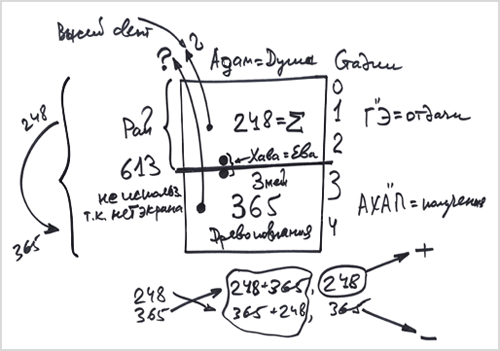 Высший свет
?
?
Адам=Душа
Стадии
0
1
2
3
4
Рай
248=Σ
Хава=Ева
Г"Э=отдачи
248
365
613
не использ.
т.к. нет экрана
Змей
365
Древо познания
АХА"П=получения
248
365
248+365, 248
365+248, 365
+
−